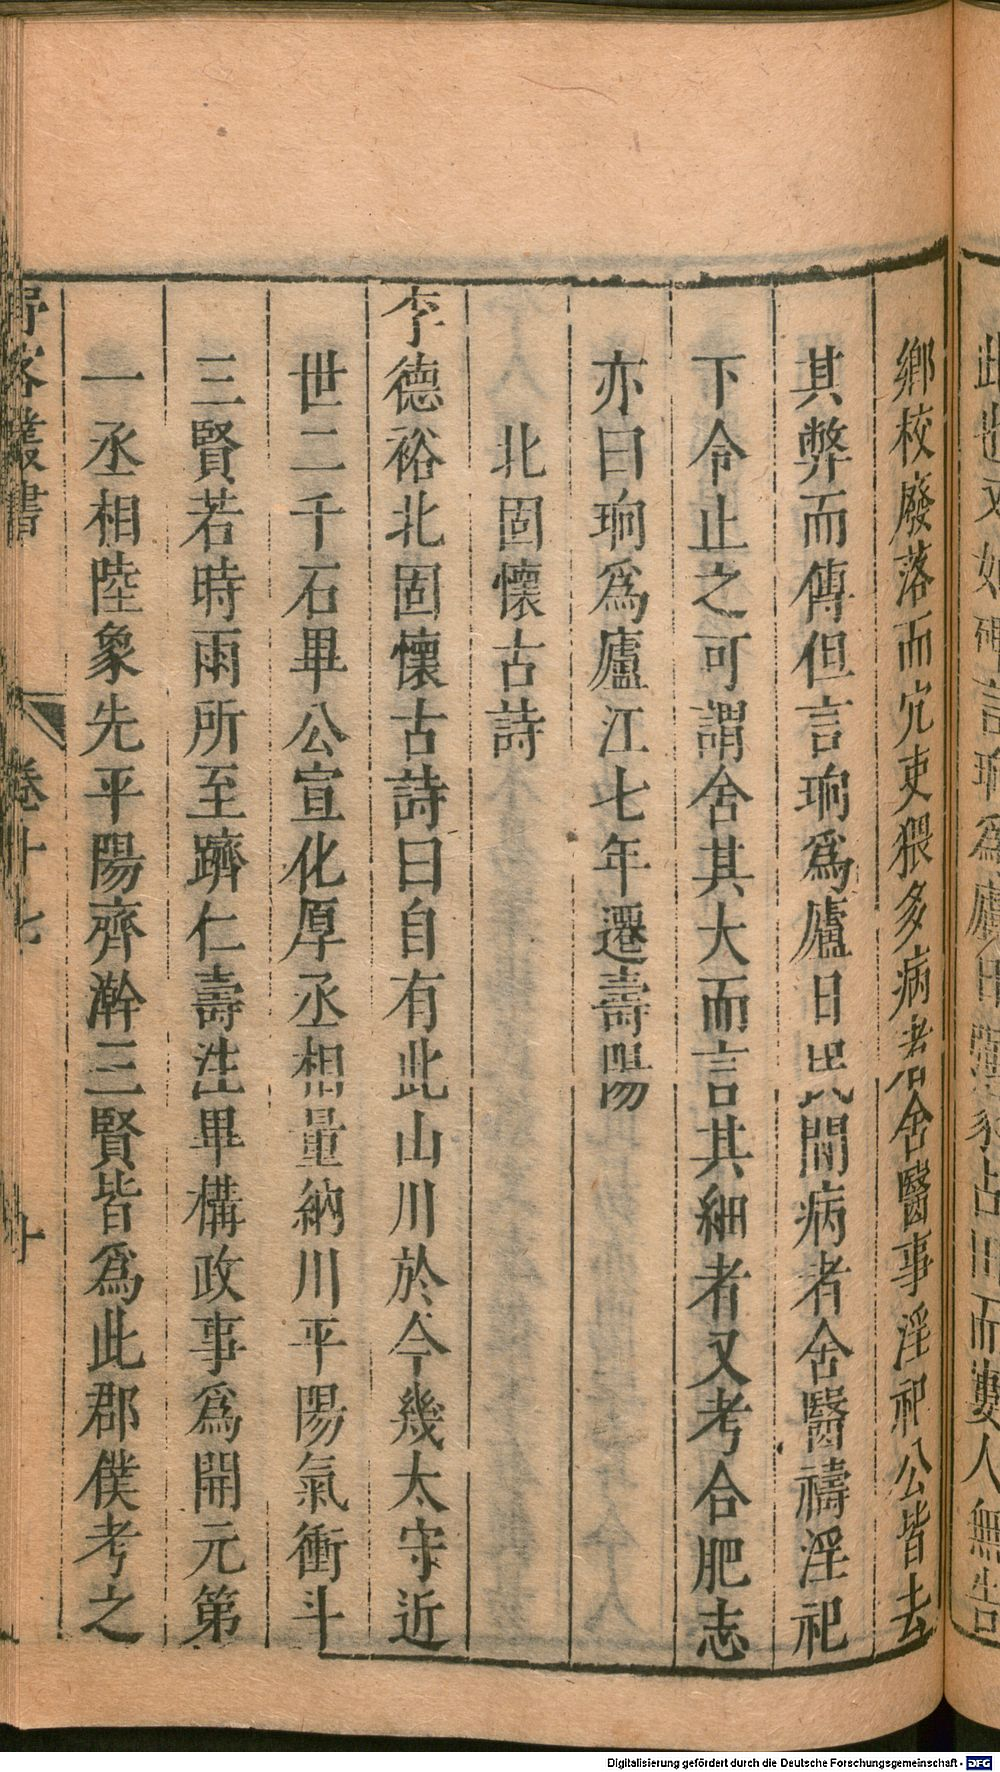 此 又如 言珦為廬 占田而婁人無告
鄉校廢落而宂吏猥多病者舍醫事淫祀公皆去
其弊而傳但言珦爲廬日民間病者舍醫禱淫祀
下令止之可謂舍其大而言其細者又考合肥志
亦曰珦爲廬江七年遷壽陽
北固懷古詩
李德裕北固懷古詩曰自有此山川於今幾太守近
世二千石畢公宣化厚丞相量納川平陽氣衝斗
三賢若時雨所至躋仁壽注畢構政事爲開元第
一丞相陸象先平陽齊澣三賢皆爲此郡僕考之
野客叢書 卷十七 十
Digitalisierung gefördert durch die Deutsche Forschungsgemeinschaft - DFG